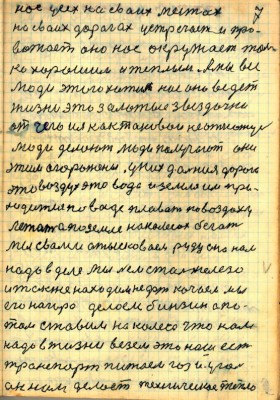 7
нос цех на своих местах
на своих дорогах встречает и про-
вожает оно нас окружает толь
ко хорошим и теплым. А мы все
люди этого хотим нас оно ведет
жизни это золотые звездочки
от его и я как таковой не откажус
люди делают люди получают они
этим огорожены у них дальния дорога
это воздух это вода и земля им при-
ходится по воде плавать по воздуху
летать а по земле на колесах бегать
мы свами отысковаем руду сто нам
надо в деле мы льем сталь железо
и тоже находим недра качаем мы
его нагоро делаем бинзин а по-
том ставим на колесо что нам
надо в жизни везем это наш ест
транспорт питаем газ и угол
он нам делает техническое тепло